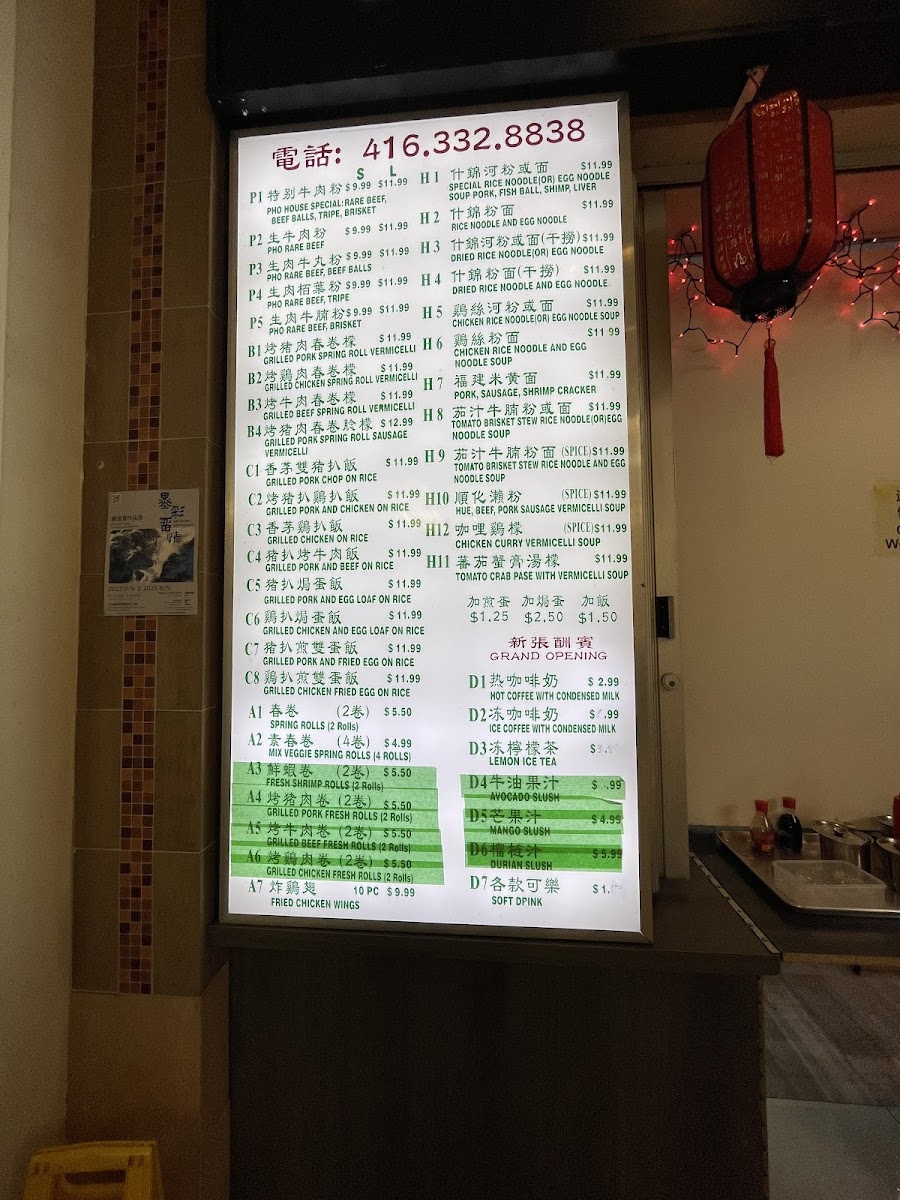 電話: 416.332.8838
S L
P1 特别牛肉粉 $9.99 $11.99
PHO HOUSE SPECIAL: RARE BEEF,
BEEF BALLS, TRIPE, BRISKET
P2 生牛肉粉 $9.99 $11.99
PHO RARE BEEF
P3 生肉牛丸粉 $9.99 $11.99
PHO RARE BEEF, BEEF BALLS
P4 生肉栢葉粉 $9.99 $11.99
PHO RARE BEEF, TRIPE
P5 生肉牛腩粉 $9.99 $11.99
PHO RARE BEEF, BRISKET
B1 烤猪肉春卷檬 $11.99
GRILLED PORK SPRING ROLL VERMICELLI
B2 烤鷄肉春卷檬 $11.99
GRILLED CHICKEN SPRING ROLL VERMICELLI
B3 烤牛肉春卷檬 $11.99
GRILLED BEEF SPRING ROLL VERMICELLI
B4 烤猪肉春卷肷檬 $12.99
GRILLED PORK SPRING ROLL SAUSAGE
VERMICELLI
C1 香茅雙猪扒飯 $11.99
GRILLED PORK CHOP ON RICE
C2 烤猪扒鷄扒飯 $11.99
GRILLED PORK AND CHICKEN ON RICE
C3 香茅鷄扒飯 $11.99
GRILLED CHICKEN ON RICE
C4 猪扒烤牛肉飯 $11.99
GRILLED PORK AND BEEF ON RICE
C5 猪扒焗蛋飯 $11.99
GRILLED PORK AND EGG LOAF ON RICE
C6 鷄扒焗蛋飯 $11.99
GRILLED CHICKEN AND EGG LOAF ON RICE
C7 猪扒煎雙蛋飯 $11.99
GRILLED PORK AND FRIED EGG ON RICE
C8 鷄扒煎雙蛋飯 $11.99
GRILLED CHICKEN FRIED EGG ON RICE
A1 春卷 (2卷) $5.50
SPRING ROLLS (2 Rolls)
A2 素春卷 (4卷) $4.99
MIX VEGGIE SPRING ROLLS (4 ROLLS)
A3 鮮蝦卷 (2卷) $5.50
FRESH SHRIMP ROLLS (2 Rolls)
A4 烤猪肉卷 (2卷) $5.50
GRILLED PORK FRESH ROLLS (2 Rolls)
A5 烤牛肉卷 (2卷) $5.50
GRILLED BEEF FRESH ROLLS (2 Rolls)
A6 烤鷄肉卷 (2卷) $5.50
GRILLED CHICKEN FRESH ROLLS (2 Rolls)
A7 炸鷄翅 10 PC $9.99
FRIED CHICKEN WINGS
H1 什錦河粉或面 $11.99
SPECIAL RICE NOODLE(OR) EGG NOODLE
SOUP PORK, FISH BALL, SHIMP, LIVER
H2 什錦粉面 $11.99
RICE NOODLE AND EGG NOODLE
H3 什錦河粉或面(干撈) $11.99
DRIED RICE NOODLE(OR) EGG NOODLE
H4 什錦粉面(干撈) $11.99
DRIED RICE NOODLE AND EGG NOODLE.
H5 鷄絲河粉或面 $11.99
CHICKEN RICE NOODLE(OR) EGG NOODLE SOUP
H6 鷄絲粉面 $11 99
CHICKEN RICE NOODLE AND EGG
NOODLE SOUP
H7 福建米黄面 $11.99
PORK, SAUSAGE, SHRIMP CRACKER
H8 茄汁牛腩粉或面 $11.99
TOMATO BRISKET STEW RICE NOODLE(OR)EGG
NOODLE SOUP
H9 茄汁牛腩粉面 (SPICE) $11.99
TOMATO BRISKET STEW RICE NOODLE AND EGG
NOODLE SOUP
H10 順化瀨粉 (SPICE) $11.99
HUE, BEEF, PORK SAUSAGE VERMICELLI SOUP
H12 咖哩鷄檬 (SPICE) $11.99
CHICKEN CURRY VERMICELLI SOUP
H11 蕃茄蟹膏湯檬 $11.99
TOMATO CRAB PASE WITH VERMICELLI SOUP
加煎蛋 加焗蛋 加飯
$1.25 $2.50 $1.50
新張酬賓
GRAND OPENING
D1 热咖啡奶 $2.99
HOT COFFEE WITH CONDENSED MILK
D2 冻咖啡奶
ICE COFFEE WITH CONDENSED MILK
D3 冻檸檬茶
LEMON ICE TEA
D4 牛油果汁
AVOCADO SLUSH
D5 芒果汁 $4.99
MANGO SLUSH
D6 榴梿汁 $5.99
DURIAN SLUSH
D7 各款可樂
SOFT DPINK